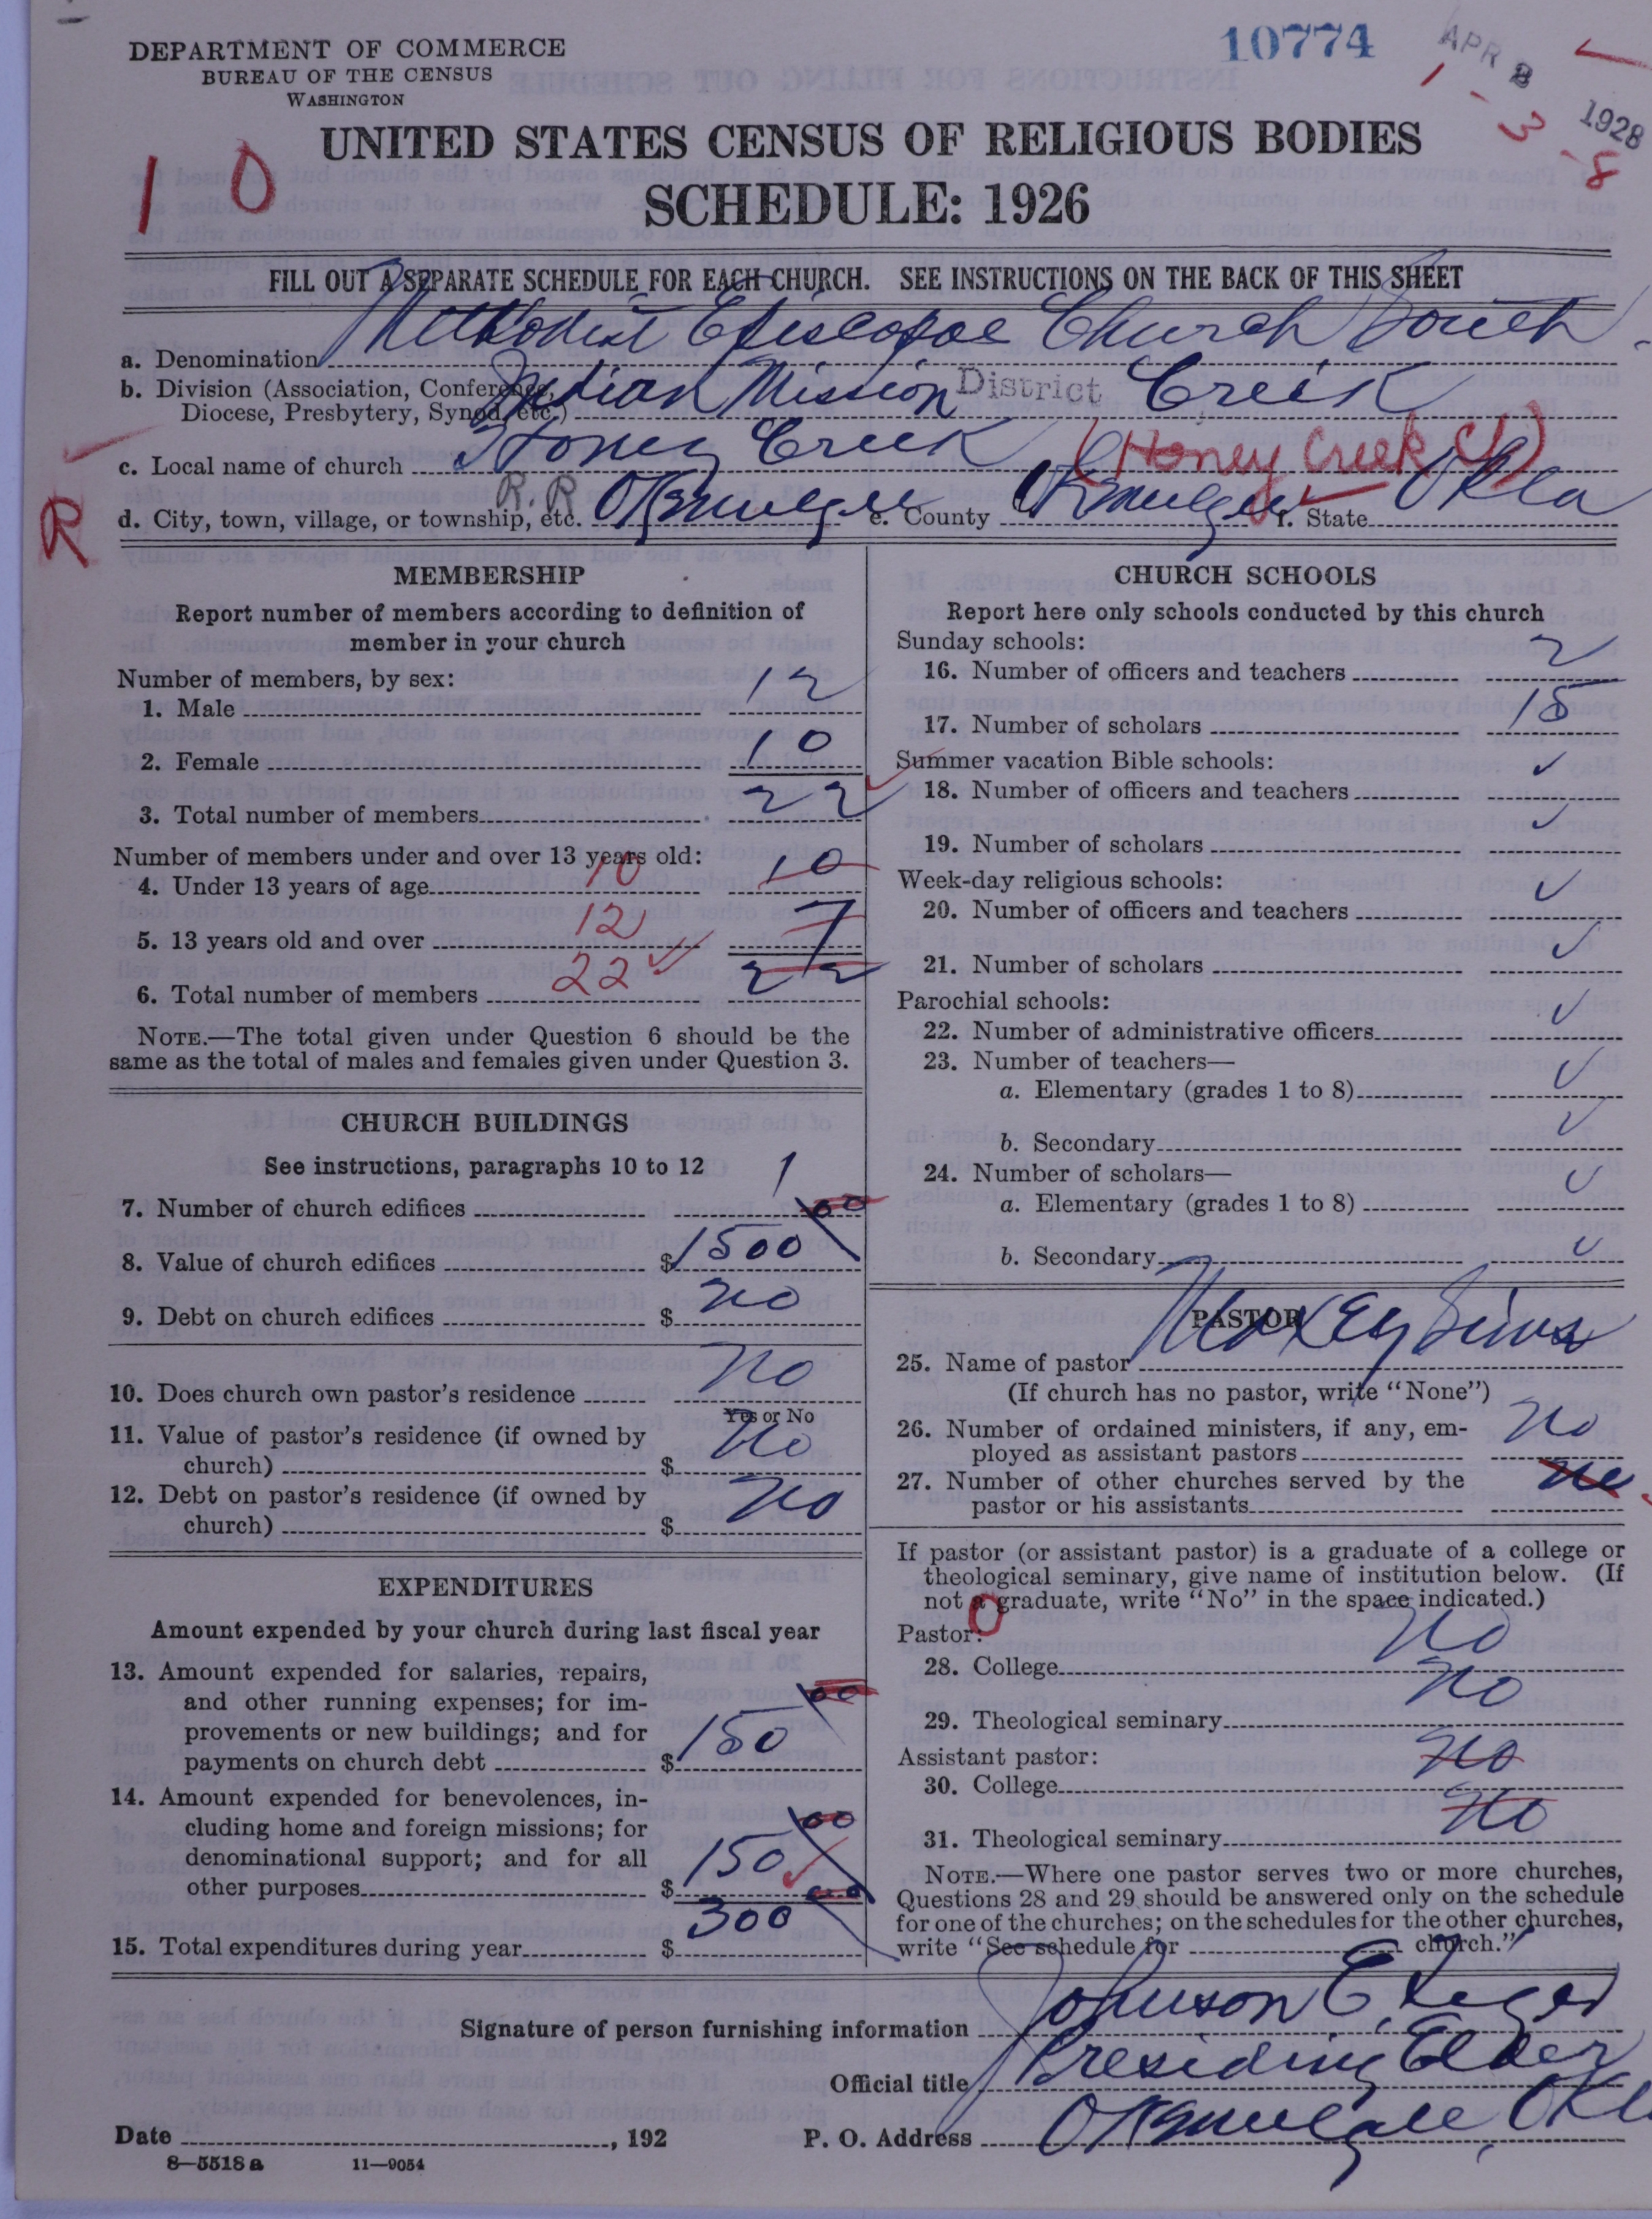 DEPARTMENT OF COMMERCE
BUREAU OF THE CENSUS
WASHINGTON
10774
APR 8 1928
1 - 3 - 8
10
UNITED STATES CENSUS OF RELIGIOUS BODIES
SCHEDULE: 1926
FILL OUT A SEPARATE SCHEDULE FOR EACH CHURCH. SEE INSTRUCTIONS ON THE BACK OF THIS SHEET
a. Denomination Methodist Episcopal Church South
b. Division (Association, Conference, Indian Mission District Creek
Diocese, Presbytery, Synod, etc.)
c. Local name of church Honey Creek (Honey Creek Ct)
R
d. City, town, village, or township, etc. R.R Okmulgee e. County Okmulgee f. State Okla
MEMBERSHIP
Report number of members according to definition of
member in your church
Number of members, by sex:
1. Male 12
2. Female 10
3. Total number of members 22
Number of members under and over 13 years old:
4. Under 13 years of age 10 10
5. 13 years old and over 12 7
6. Total number of members 22 22
NOTE.—The total given under Question 6 should be the
same as the total of males and females given under Question 3.
CHURCH BUILDINGS
See instructions, paragraphs 10 to 12
7. Number of church edifices 1
8. Value of church edifices $1500 00
9. Debt on church edifices $ no
10. Does church own pastor's residence no
Yes or No
11. Value of pastor's residence (if owned by
church) $ no
12. Debt on pastor's residence (if owned by
church) $ no
EXPENDITURES
Amount expended by your church during last fiscal year
13. Amount expended for salaries, repairs,
and other running expenses; for im-
provements or new buildings; and for
payments on church debt $150 00
14. Amount expended for benevolences, in-
cluding home and foreign missions; for
denominational support; and for all
other purposes $150 00
15. Total expenditures during year $300 00
CHURCH SCHOOLS
Report here only schools conducted by this church
Sunday schools:
16. Number of officers and teachers 2
17. Number of scholars 15
Summer vacation Bible schools:
18. Number of officers and teachers ✓
19. Number of scholars ✓
Week-day religious schools:
20. Number of officers and teachers ✓
21. Number of scholars ✓
Parochial schools:
22. Number of administrative officers ✓
23. Number of teachers—
a. Elementary (grades 1 to 8) ✓
b. Secondary ✓
24. Number of scholars—
a. Elementary (grades 1 to 8) ✓
b. Secondary ✓
PASTOR
25. Name of pastor Moxey Sims
(If church has no pastor, write "None")
26. Number of ordained ministers, if any, em-
ployed as assistant pastors no
27. Number of other churches served by the
pastor or his assistants no
If pastor (or assistant pastor) is a graduate of a college or
theological seminary, give name of institution below. (If
not a graduate, write "No" in the space indicated.)
Pastor: 0
28. College no
29. Theological seminary no
Assistant pastor:
30. College no
31. Theological seminary no
NOTE.—Where one pastor serves two or more churches,
Questions 28 and 29 should be answered only on the schedule
for one of the churches; on the schedules for the other churches,
write "See schedule for church."
Signature of person furnishing information Johnson E Tiger
Official title Presiding Elder
Date , 192 P. O. Address Okmulgee, Okla
8—5518 a 11—9054